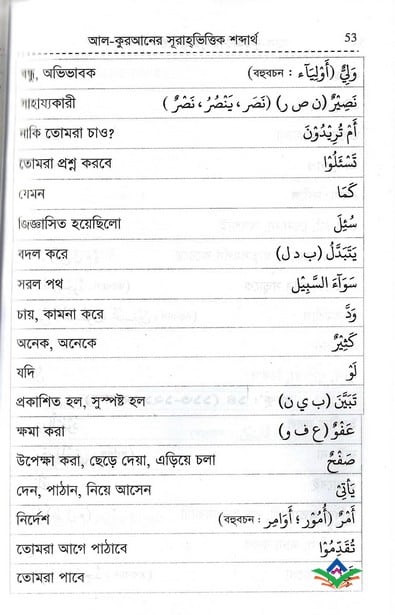 আল-কুরআনের সূরাহ্ভিত্তিক শব্দার্থ 53
বন্ধু, অভিভাবক وَلِيٌّ (أَوْلِيَآء : বহুবচন)
সাহায্যকারী نَصِيْرٌ (ن ص ر) (نَصَرَ، يَنْصُرُ، نَصْرٌ)
নাকি তোমরা চাও? أَمْ تُرِيْدُوْنَ
তোমরা প্রশ্ন করবে تَسْئَلُوْا
যেমন كَمَا
জিজ্ঞাসিত হয়েছিলো سُئِلَ
বদল করে يَتَبَدَّلُ (ب د ل)
সরল পথ سَوَآءَ السَّبِيْل
চায়, কামনা করে وَدَّ
অনেক, অনেকে كَثِيْرٌ
যদি لَوْ
প্রকাশিত হল, সুস্পষ্ট হল تَبَيَّنَ (ب ي ن)
ক্ষমা করা عَفْوٌ (ع ف و)
উপেক্ষা করা, ছেড়ে দেয়া, এড়িয়ে চলা صَفْحٌ
দেন, পাঠান, নিয়ে আসেন يَأْتِيْ
নির্দেশ أَمْرٌ (أُمُوْر ؛ أَوَامِر : বহুবচন)
তোমরা আগে পাঠাবে تُقَدِّمُوْا
তোমরা পাবে